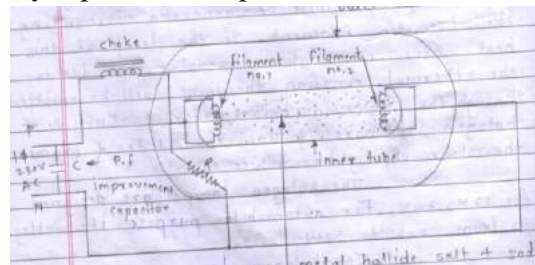 choke
filament
no.1
filament
no.2
P
1ϕ
230V
AC
C
P.f
improvement
capacitor
N
R
inner tube
metal hallide salt + sod